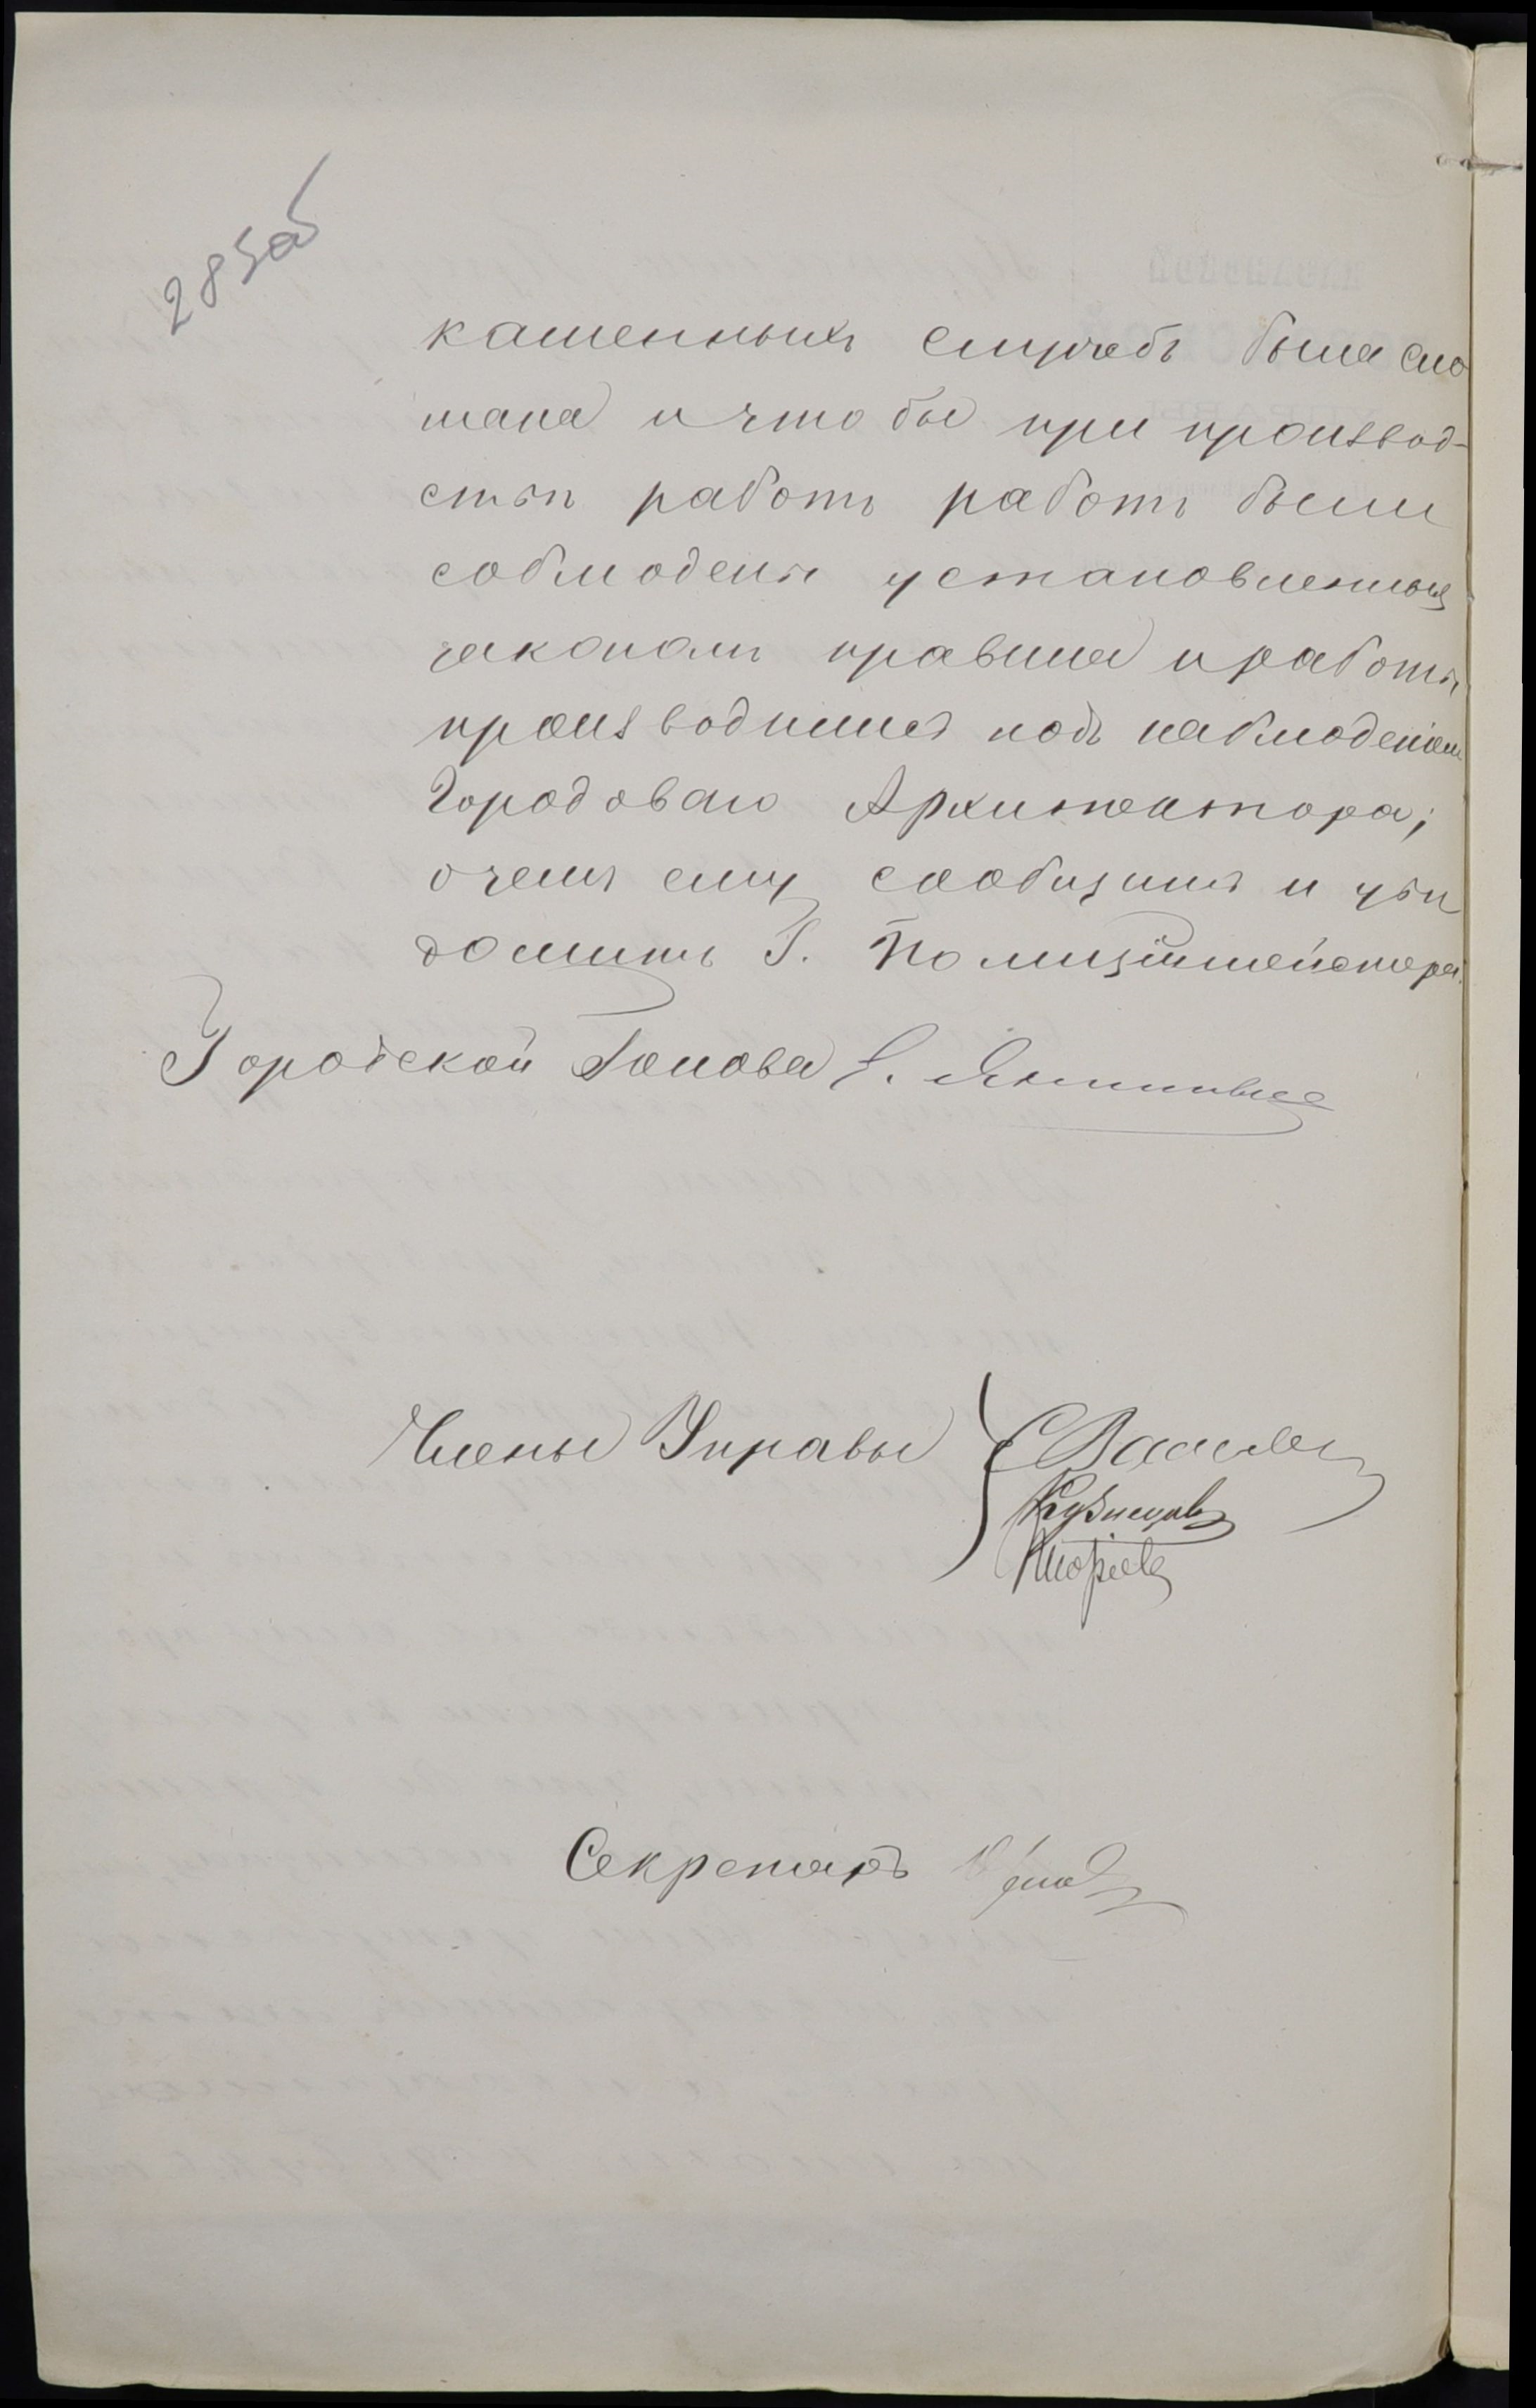 285об
каменныхъ службъ была сло
мана и что бы при производ-
ствѣ работъ работъ были
соблюдены установленныя
закономъ правила и работы
производились подъ наблюденіем
Городоваго Архитектора;
о чемъ ему сообщить и увѣ
домить Г. Полиціймейстера.
Городской Голова Е.
Члены Управы
Кузнецовъ
Секретарь